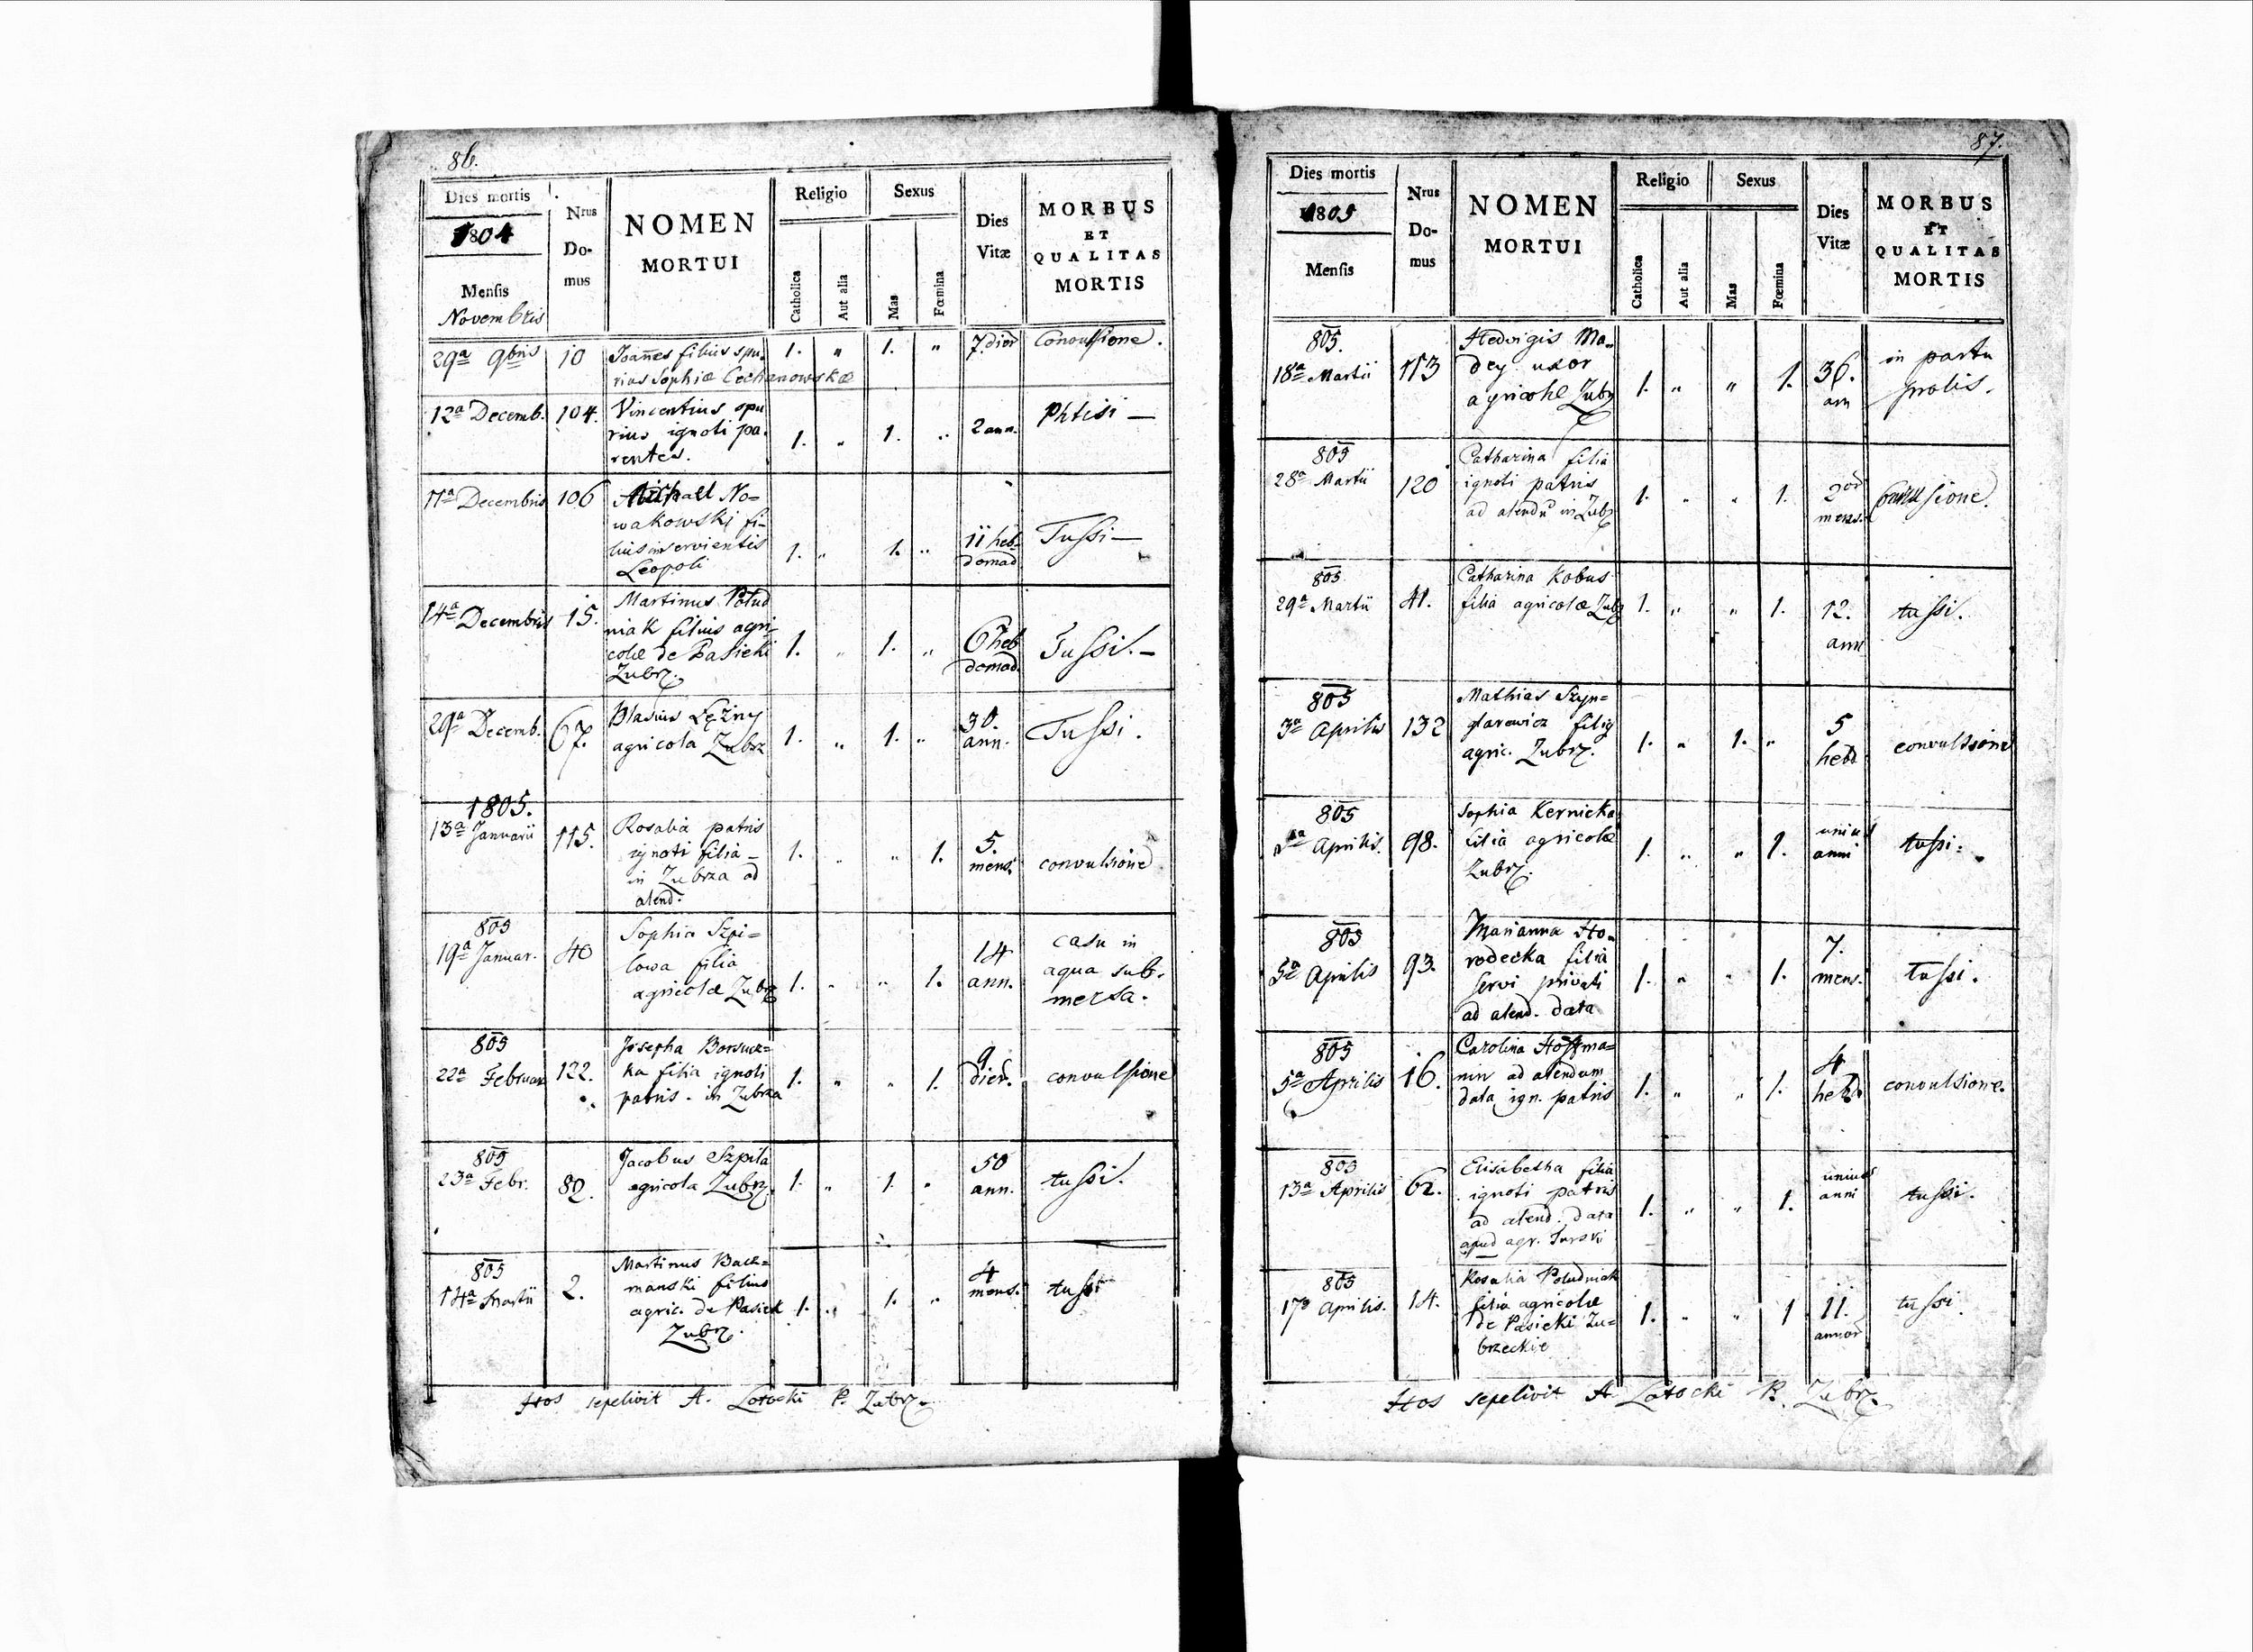 86.
Dies mortis
1804
Mensis
Novembris
Nrus
Do-
mus
NOMEN
MORTUI
Religio
Catholica
Aut alia
Sexus
Mas
Fœmina
Dies
Vitæ
MORBUS
ET
QUALITAS
MORTIS
29a 9bris 10 Joannes filius spu- 1. " 1. " 7 dier Convulsione.
rius Sophiæ Cechanowskæ
12a Decemb. 104. Vincentius spu
rius ignoti pa- 1. " 1. " 2 ann. Phtisi —
rentes.
11a Decembris 106 Michael No-
wakowski fi-
lius inservientis 1. " 1. " 11 heb- Tussi —
Leopoli domad.
14a Decembris 15. Martinus Połud
niak filius agri-
colæ de Pasieki 1. " 1. " 6 heb Tussi. —
Zubrz. domad.
29a Decemb. 67. Blasius Lężny 30.
agricola Zubrz 1. " 1. " ann. Tussi.
1805.
13a Januarii 115. Rosalia patris
ignoti filia — 1. " " 1. 5.
in Zubrza ad mens. convulsione
alend.
805
19a Januar. 40 Sophia Szpi= 14 casu in
lowa filia ann. aqua sub-
agricolæ Zubrz 1. " " 1. mersa.
805
22a Februar 122. Josepha Borsucz= 9
ka filia ignoti 1. " " 1. dier. convulsione
patris. in Zubrza
805
23a Febr. 82. Jacobus Szpila 50
agricola Zubrz. 1. " 1. " ann. tussi.
805
14a Martii 2. Martinus Bacz= 4
manski filius mens. tussi
agric. de Pasiek 1. " 1. "
Zubrz.
Hos sepelivit A. Łotocki P. Zubrz.
87.
Dies mortis
1805
Mensis
Nrus
Do-
mus
NOMEN
MORTUI
Religio
Catholica
Aut alia
Sexus
Mas
Fœmina
Dies
Vitæ
MORBUS
ET
QUALITAS
MORTIS
805.
18a Martii 113 Hedvigis Ma-
dey uxor 1. " " 1. 36. in partu
agricolæ Zubrz ann prolis.
805
28a Martii 120 Catharina filia
ignoti patris 1. " " 1. 2or
ad alendū in Zubrz mens. convulsione.
805
29a Martii 41. Catharina Kobus
filia agricolæ Zubrz 1. " " 1. 12. tussi.
ann
805
3a Aprilis 132 Mathias Szyn=
glarewicz filiq 5
agric. Zubrz. 1. " 1. " hebd convulsione
805
Aprilis. 98. Sophia Kernicka
filia agricolæ 1. " " 1. unius tussi.
Zubrz. anni
805
5a Aprilis 93. Marianna Ho-
rodecka filia 7.
servi privati 1. " " 1. mens. tussi.
ad alend. data
805
5a Aprilis 16. Carolina Hoffma=
nin ad alendum 4
data ign. patris 1. " " 1. hebd. convulsione.
805
13a Aprilis 62. Elisabetha filia
ignoti patris unius
ad alend. data 1. " " 1. anni tussi.
apud agr. Turski
805
17a Aprilis. 14. Rosalia Południak
filia agricolæ 1. " " 1 11. tussi.
de Pasieki Zu= annor
brzeckie
Hos sepelivit A. Łotocki P. Zubrz.